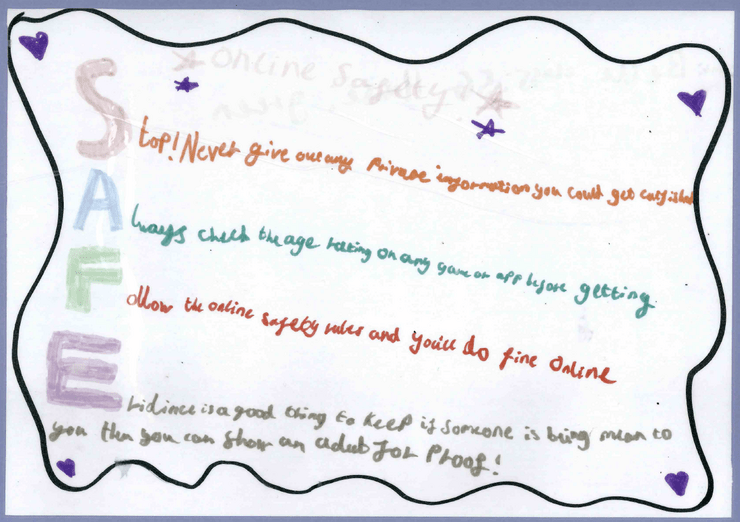 Online Safety
Stop! Never give out any Private information you could get catfished
Always check the age rating on any game or app before getting
Follow the online safety rules and you'll do fine Online
Evidince is a good thing to keep if someone is being mean to
you then you can show an adult for Proof!